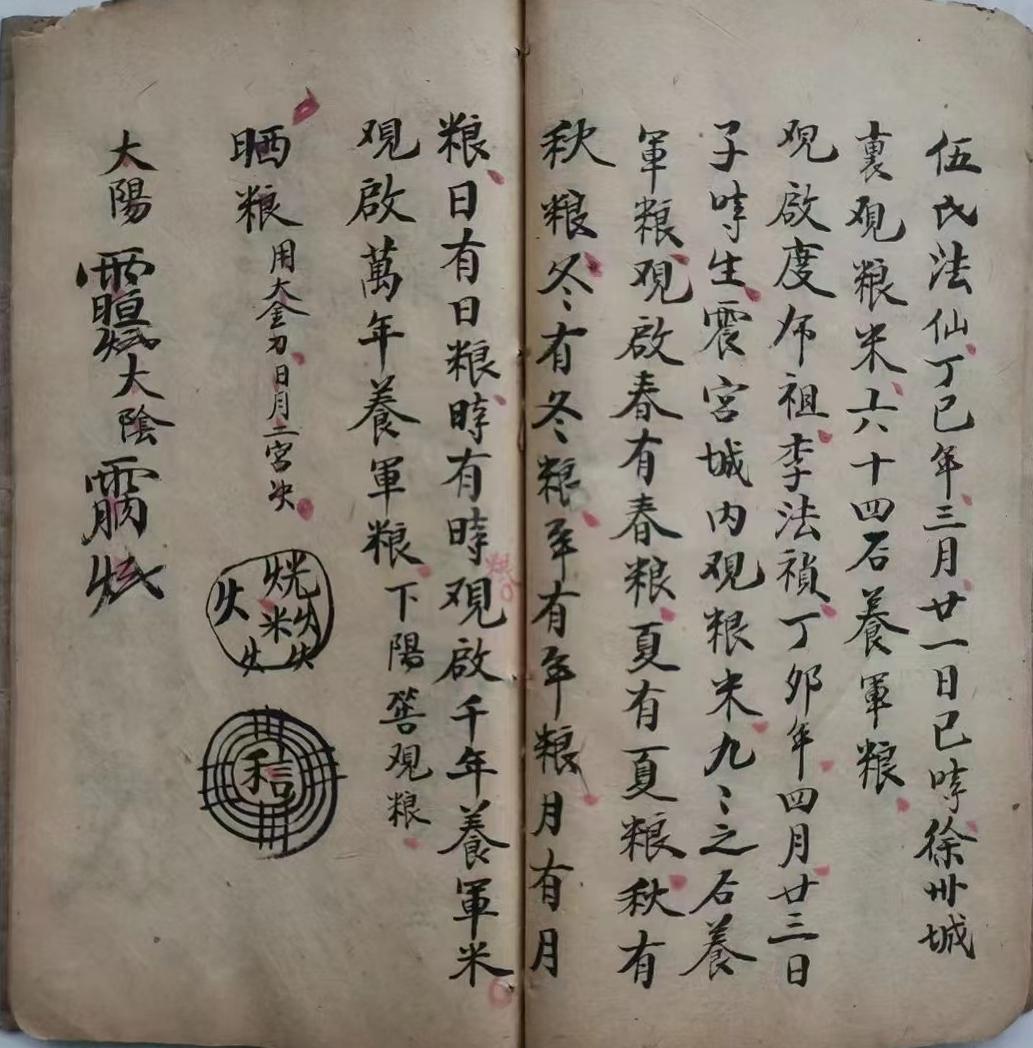 伍氏法仙丁巳年三月廿一日巳時徐州城
裏观粮米六十四石養軍粮
观啟度師祖李法禎丁卯年四月廿三日
子時生震宮城内观粮米九〻之石養
軍粮观啟春有春粮夏有夏粮秋有
秋粮冬有冬粮年有年粮月有月
粮日有日粮時有時观啟千年養軍米
观啟萬年養軍粮下陽筶观粮
晒粮用大金刀日月二宮决
太陽
太陰